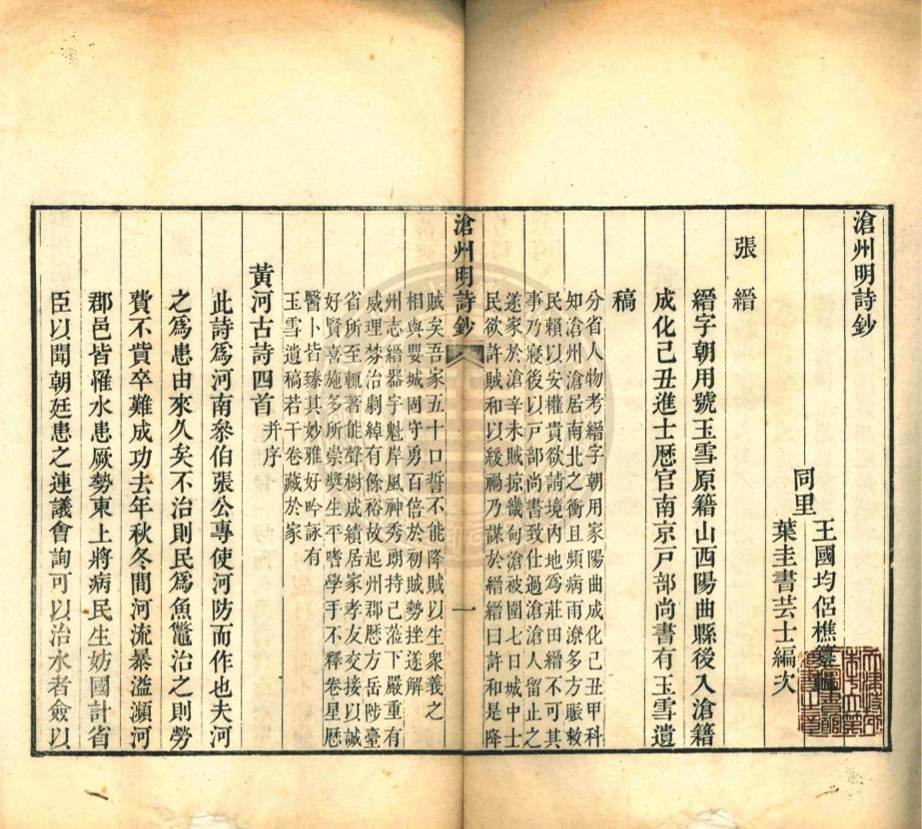 滄州明詩鈔
同里
王國均侶樵
葉圭書芸士編次
張縉
縉字朝用號玉雪原籍山西陽曲縣後入滄籍
成化己丑進士歷官南京戸部尚書有玉雪遺
稿
分省人物考縉字朝用家陽曲成化己丑甲科
知滄州滄居南北之衝且頻病雨潦多方賑敕
民賴以安權貴欲請境內地為莊田縉不可其
事乃寢後以戸部尚書致仕過滄滄人留止之
遂家於滄辛未賊掠畿甸滄被圍七日城中士
民欲許賊和以緩禍乃謀於縉縉曰許和是降
滄州明詩鈔
一
賊矣吾家五十口誓不能降賊以生衆義之
相與嬰城固守勇百倍於初賊勢挫遂解
州志縉器宇魁岸風神秀朗持己蒞下嚴重有
威理棼治劇綽有餘裕故起州郡歷方岳陟臺
省所至輒著能聲樹成績居家孝友交接以誠
好賢喜施多所崇獎生平嗜學手不釋卷星歷
醫卜皆臻其妙雅好吟詠有
玉雪遺稿若干卷藏於家
黃河古詩四首并序
此詩為河南叅伯張公專使河防而作也夫河
之為患由來久矣不治則民為魚鼈治之則勞
費不貲卒難成功去年秋冬間河流暴溢瀕河
郡邑皆罹水患厥勢東上將病民生妨國計省
臣以聞朝廷患之連議會詢可以治水者僉以